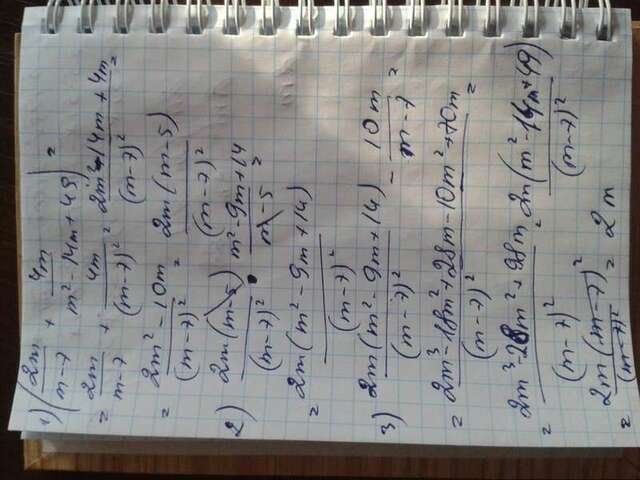 1) (2m/(m-7) + 4m/(m²-14m+49)) =
= 2m/(m-7) + 4m/(m-7)² = (2m²-14m+4m)/(m-7)² =
= (2m²-10m)/(m-7)² = 2m(m-5)/(m-7)²
2) 2m(m-5)/(m-7)² · (m²-9m+14)/(m-5) =
= 2m(m²-9m+14)/(m-7)²
3) 2m(m²-9m+14)/(m-7)² - 10m/(m-7) =
= (2m³-18m²+28m-10m²+70m)/(m-7)² =
= (2m³-28m²+98m)/(m-7)² = 2m(m²-14m+49)/(m-7)²
= 2m(m-7)²/(m-7)² = 2m